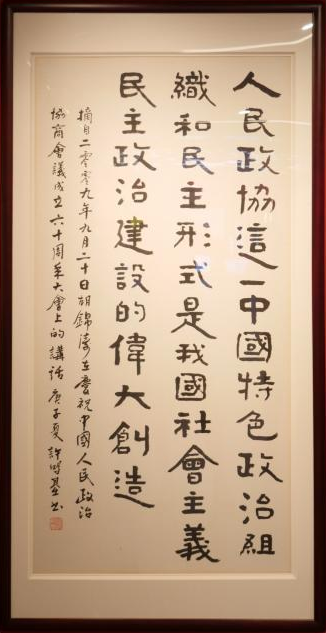 人民政協這一中國特色政治組
織和民主形式是我國社會主義
民主政治建設的偉大創造
摘自二零零九年九月二十日胡錦濤在慶祝中國人民政治
協商會議成立六十周年大會上的講話 庚子夏 許